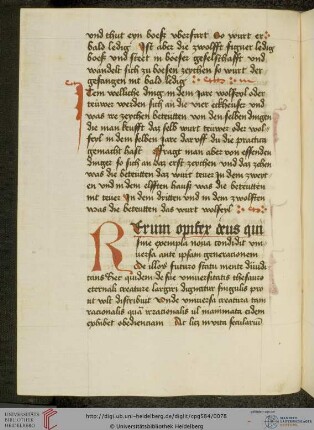 und thut eyn boeß uberfart So wurt er
bald ledig Ist aber die zwolfft figuer ledig
boeß und steet in boeser geselschafft und
wandelt sich zu boesen zeychen so wurt der
gefangen mit bald ledig
Item welliche ding in dem jare wolfeyl oder
teuwer werden sich an die vier eckheuser und
was ire zeychen betutten von den selben dingen
die man kaufft das selb wurt teuwer oder wol-
feyl in dem selben jare dar uff du die practica
gemacht hast Fragt man aber von essenden
dinges so sich an das erst zeychen und das zehen
was die betutten das wurt teuer In dem zweyt
en und in dem eilfften hauß was die betutten
mit teuer In dem dritten und in dem zwolfften
was die betutten das wurt wolfeyl
Rerum opifex deus qui
sine exempla noua condidit vni
uersa ante ipsam generacionem
de illor futuro statu mente diuidi
tans Hec quidem de sue vniuersitatis thesauro
eternali creature largiri dignatur singulis pro
ut vult distribuit Unde vniuersa creatura tam
racionalis quam irracionalis vl inanimata eidem
exhibet obedienciam Ac licet in vita secularium
UNIVERSITÄTS-
BIBLIOTHEK
HEIDELBERG
http://digi.ub.uni-heidelberg.de/diglit/cpg584/0078
© Universitätsbibliothek Heidelberg